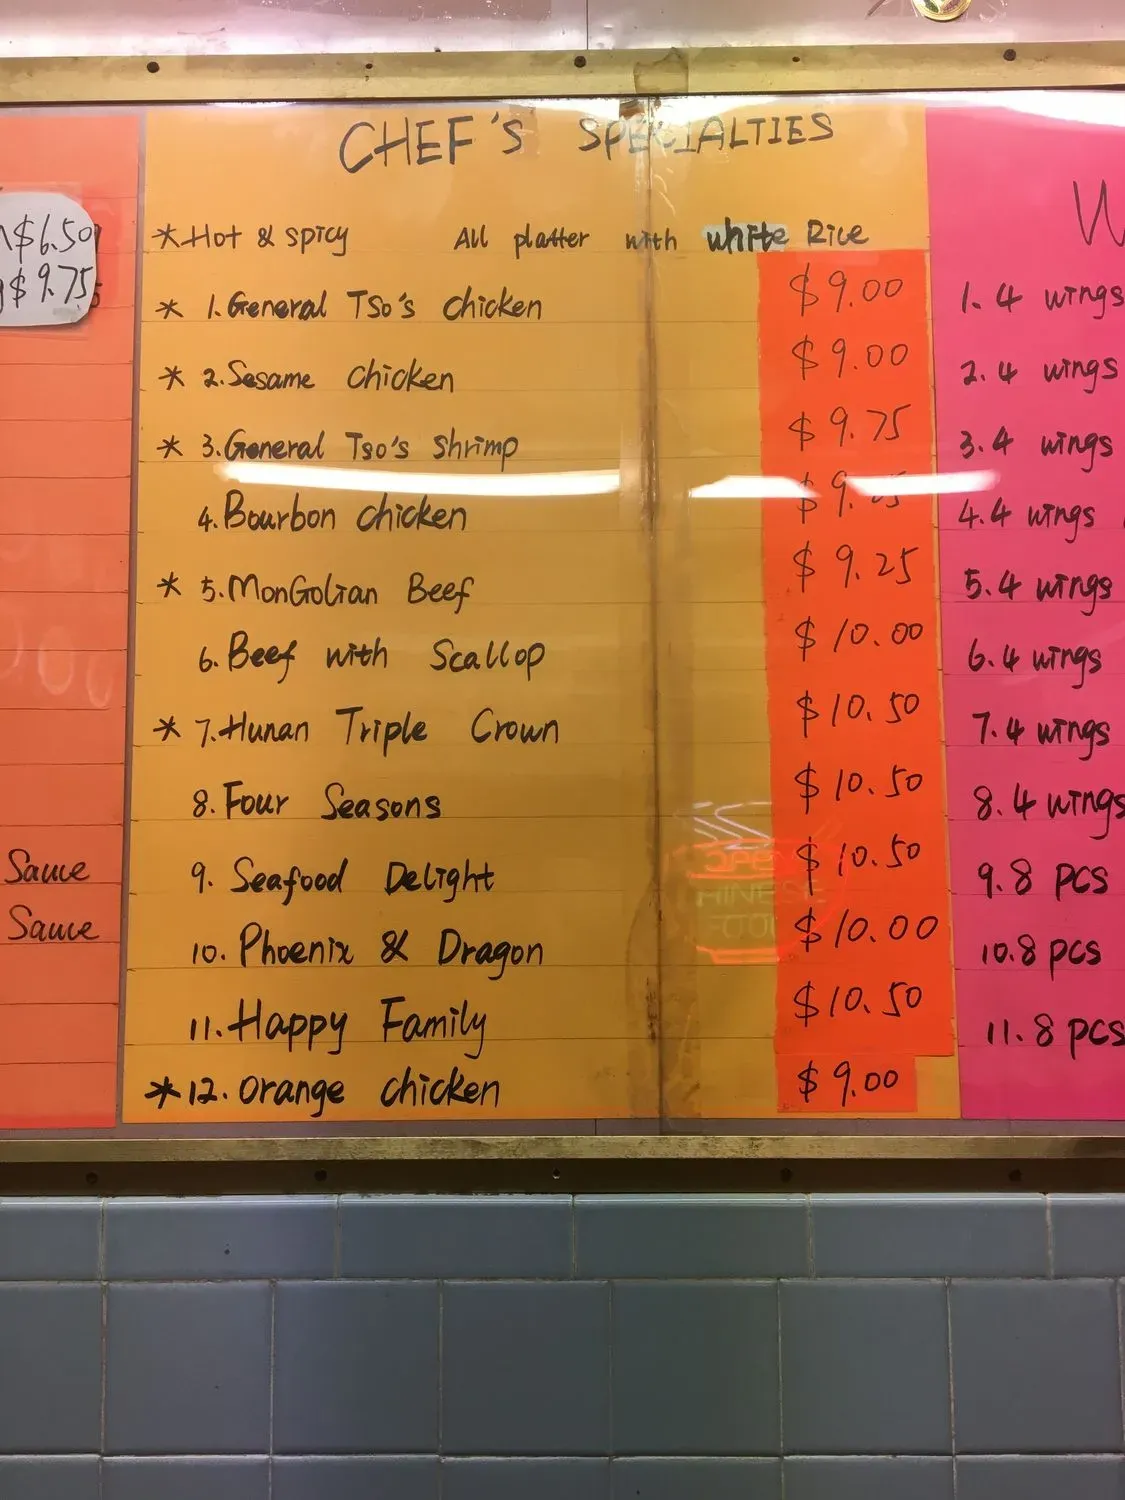 CHEF'S SPECIALTIES
*Hot & spicy All platter with white Rice
* 1. General Tso's chicken $9.00
* 2. Sesame chicken $9.00
* 3. General Tso's Shrimp $9.75
4. Bourbon chicken
* 5. MonGolian Beef $9.25
6. Beef with Scallop $10.00
* 7. Hunan Triple Crown $10.50
8. Four Seasons $10.50
9. Seafood Delight $10.50
10. Phoenix & Dragon $10.00
11. Happy Family $10.50
*12. Orange chicken $9.00
$6.50
$9.75
Sauce
Sauce
1. 4 wings
2. 4 wings
3. 4 wings
4. 4 wings
5. 4 wings
6. 4 wings
7. 4 wings
8. 4 wings
9. 8 pcs
10. 8 pcs
11. 8 pcs